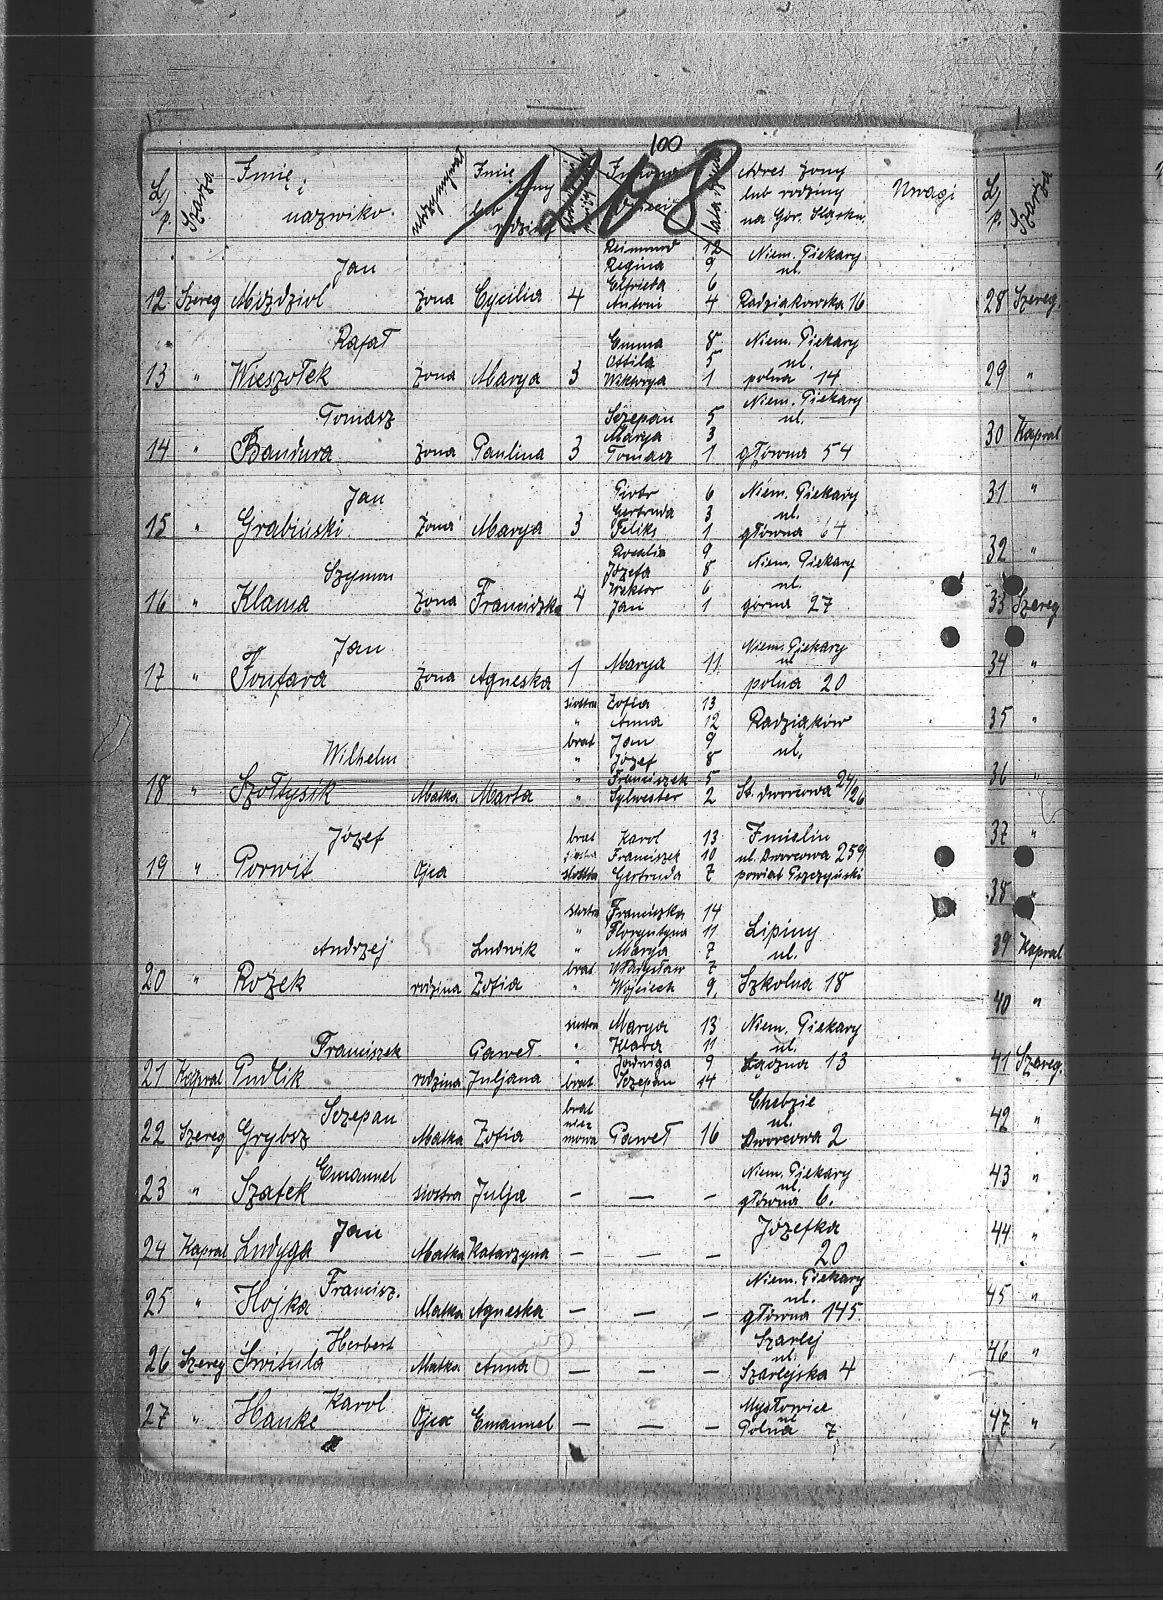 100
1208
L/p. Szarża Imię i nazwisko Imię żony lub rodziny Imiona lata Adres żony lub rodziny na Gór. Śląsku Uwagi
Reimund 12 Niem. Piekary
Jan Regina 9 ul.
Elfrieda 6
12 Szereg Moździol żona Cycilia 4 Antoni 4 Radziąkowska 16
Rafał Emma 8 Niem. Piekary
Ottila 5 ul.
13 " Wieszołek żona Marya 3 Wiktorya 1 polna 14
Tomasz Niem. Piekary
Szczepan 5 ul.
Marya 3
14 " Bandura żona Paulina 3 Tomasz 1 główna 54
Jan Piotr 6 Niem. Piekary
Gertruda 3 ul.
15 " Grabiński żona Marya 3 Feliks 1 główna 64
Rozalia 9
Szymon Józefa 8 Niem. Piekary
Wiktor 6 ul.
16 " Klama żona Franciszka 4 Jan 1 górna 27
Jan Niem. Piekary
1 Marya 11 ul.
17 " Fontara żona Agneska polna 20
siostra Zofia 13
" Anna 12 Radziąków
brat Jan 9 ul.
Wilhelm " Józef 8
" Franciszek 5
18 " Szołtysik Matka Marta " Sylwester 2 St. dworcowa 24/26
Józef brat Karol 13 Imielin
Franciszek 10 ul. Dworcowa 259
19 " Porwit Ojca siostra Gertruda 7 powiat Pszczyński
siostra Franciszka 14
" Florentyna 11 Lipiny
Andrzej Ludwik " Marya 7 ul.
brat Władysław 7
20 " Rożek rodzina Zofia " Wojciech 9. Szkolna 18
siostra Marya 13 Niem. Piekary
Franciszek Paweł " Klara 11 ul.
" Jadwiga 9 Łączna 13
21 Kapral Pudlik rodzina Juljana brat Szczepan 14
Szczepan brat Chebzie
ul.
22 Szereg Grybsz Matka Zofia Paweł 16 Dworcowa 2
Emanuel Niem. Piekary
ul.
23 " Szatek siostra Julja — — — główna 6.
Jan Józefka
24 Kapral Ludyga Matka Katarzyna — — — 20
Francisz. Niem. Piekary
ul.
25 " Hojka Matka Agneska — — — główna 145
Herbert Szarlej
ul.
26 Szereg Switula Matka Anna — — — Szarlejska 4
Karol Mysłowice
ul
27 " Hanke Ojca Emanuel — — — Polna 7
L/p. Szarża
28 Szereg.
29 "
30 Kapral
31 "
32 "
33 Szereg
34 "
35 "
36 "
37 "
38 "
39 Kapral
40 "
41 Szereg.
42 "
43 "
44 "
45 "
46 "
47 "